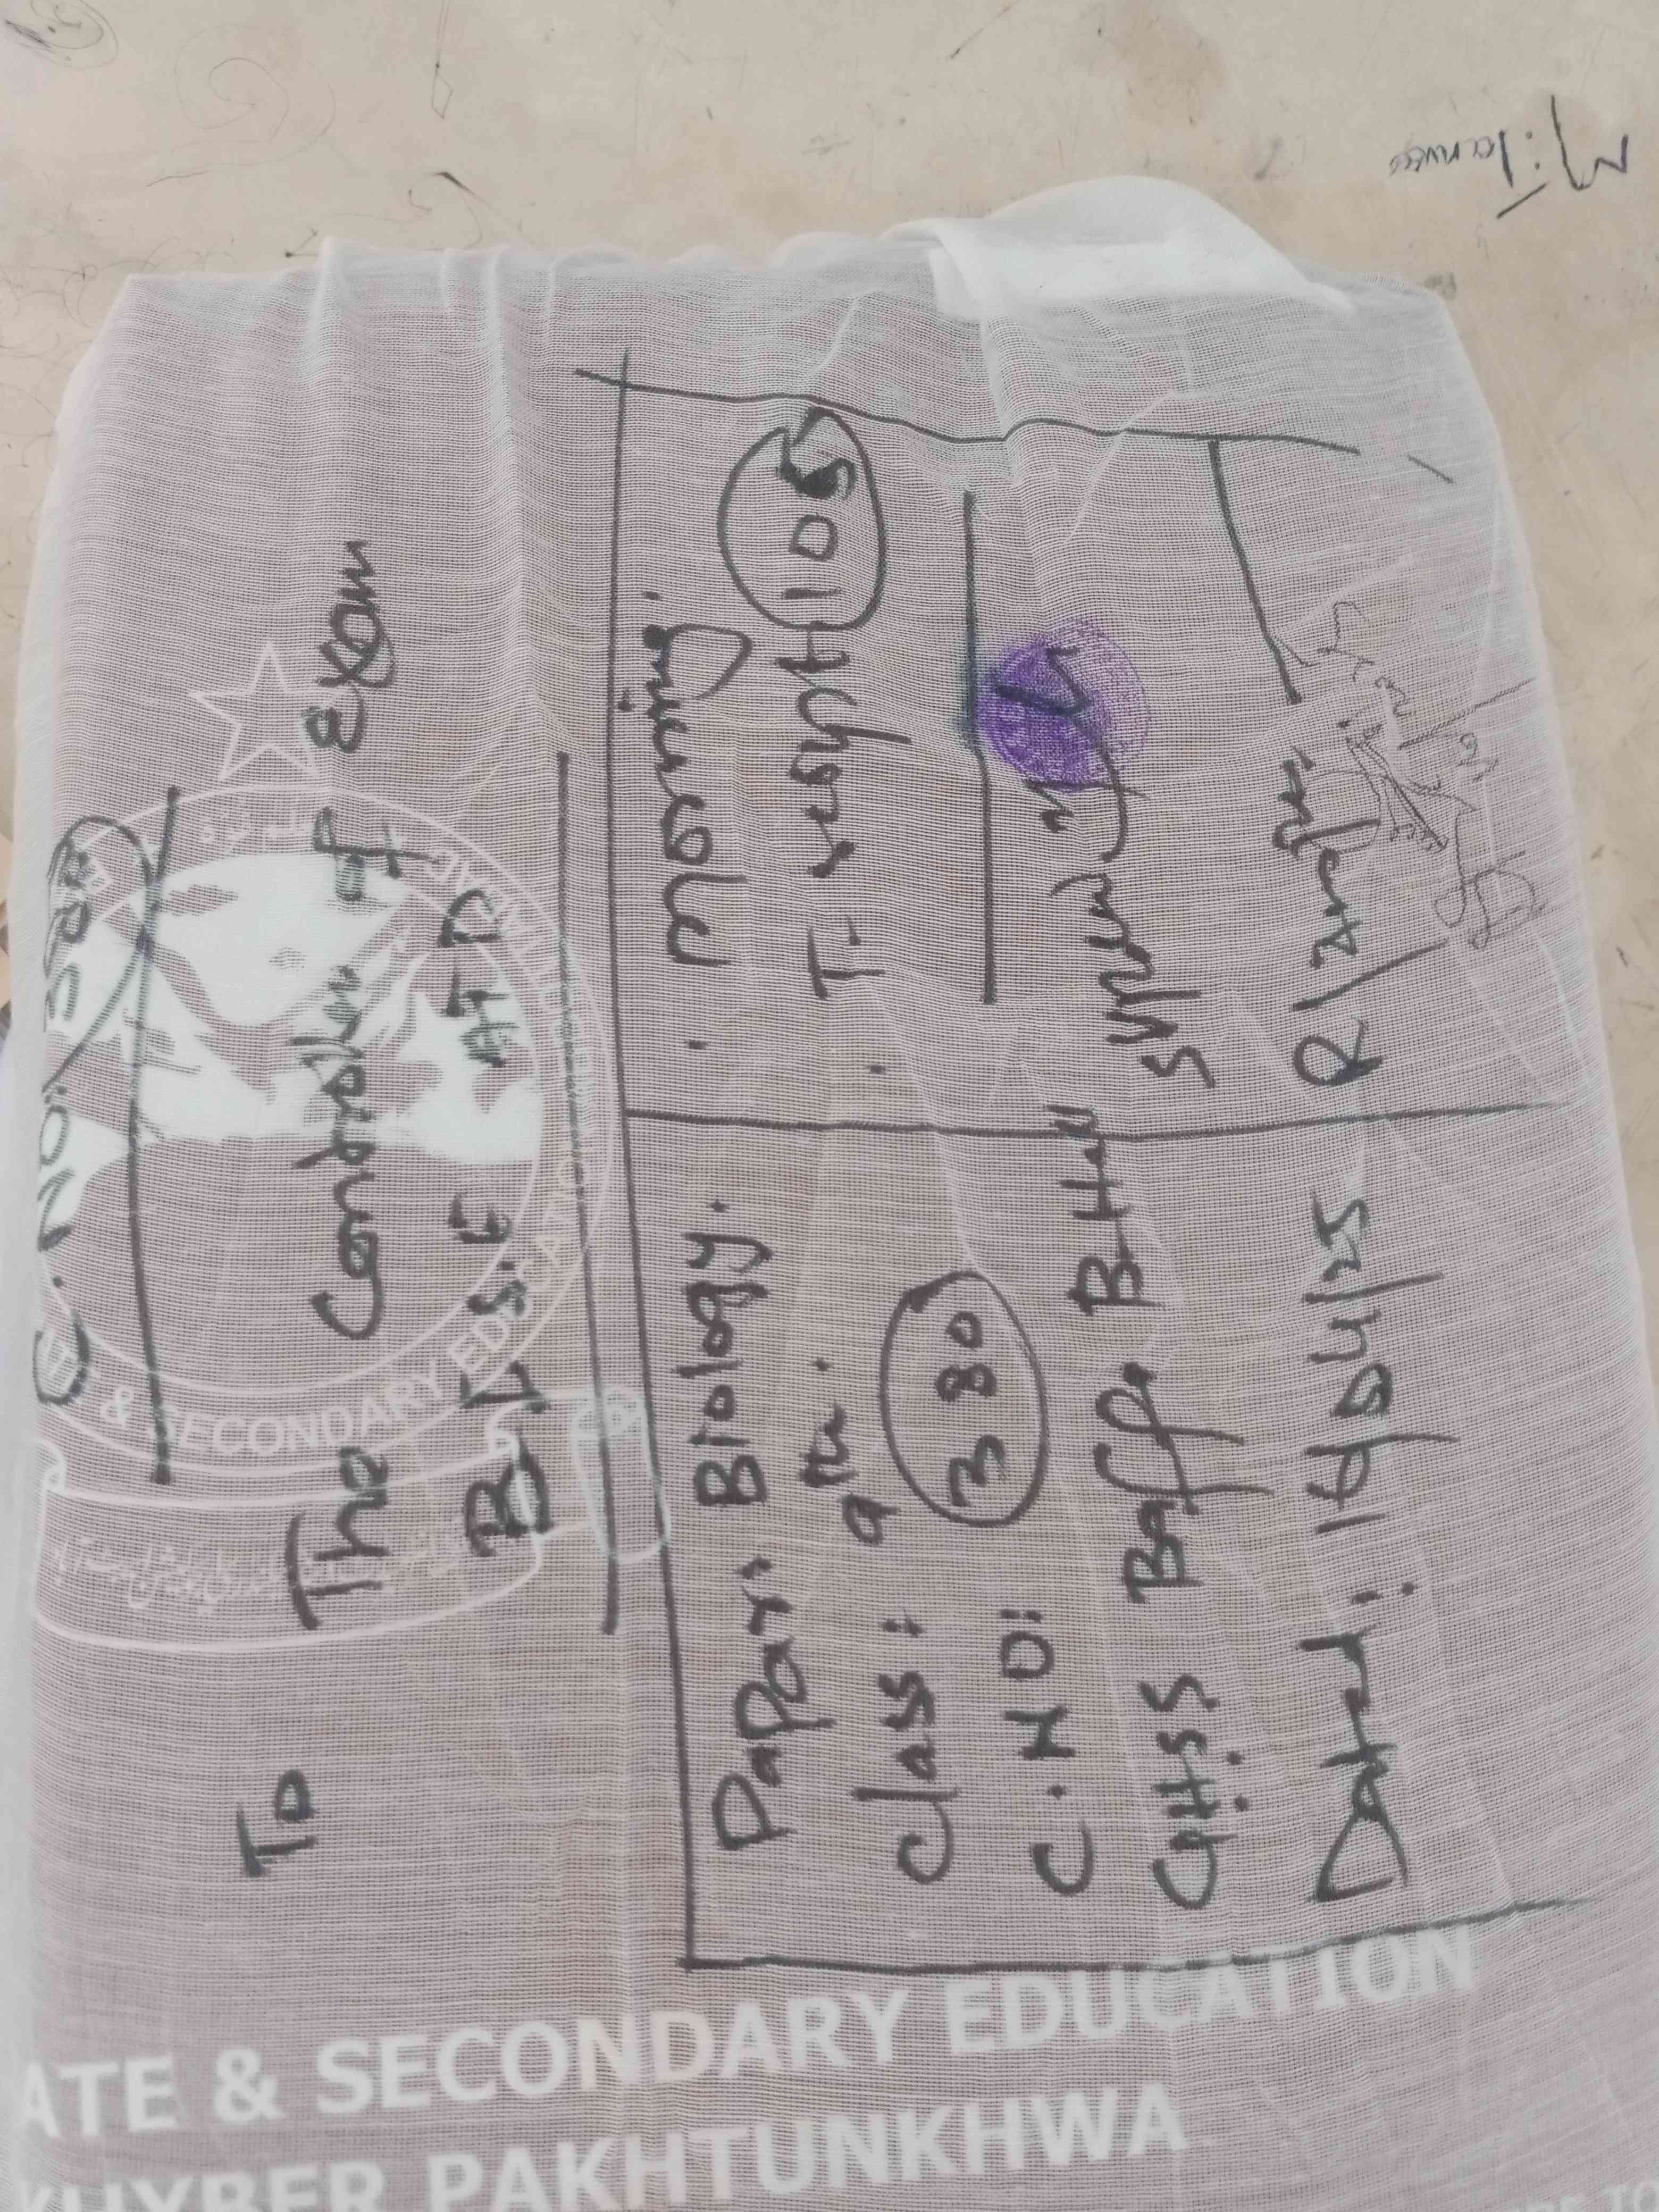 C. NO: 380
To
The Controller of Exam
B.I.S.E ATD
Paper: Biology.
Class: 9th.
C.NO: 380
GHSS Baffa B-Hall
Dated: 14/04/25
Morning.
T-script 105
Supdt
R/Supt
& SECONDARY EDUCATION
ATE & SECONDARY EDUCATION
KHYBER PAKHTUNKHWA